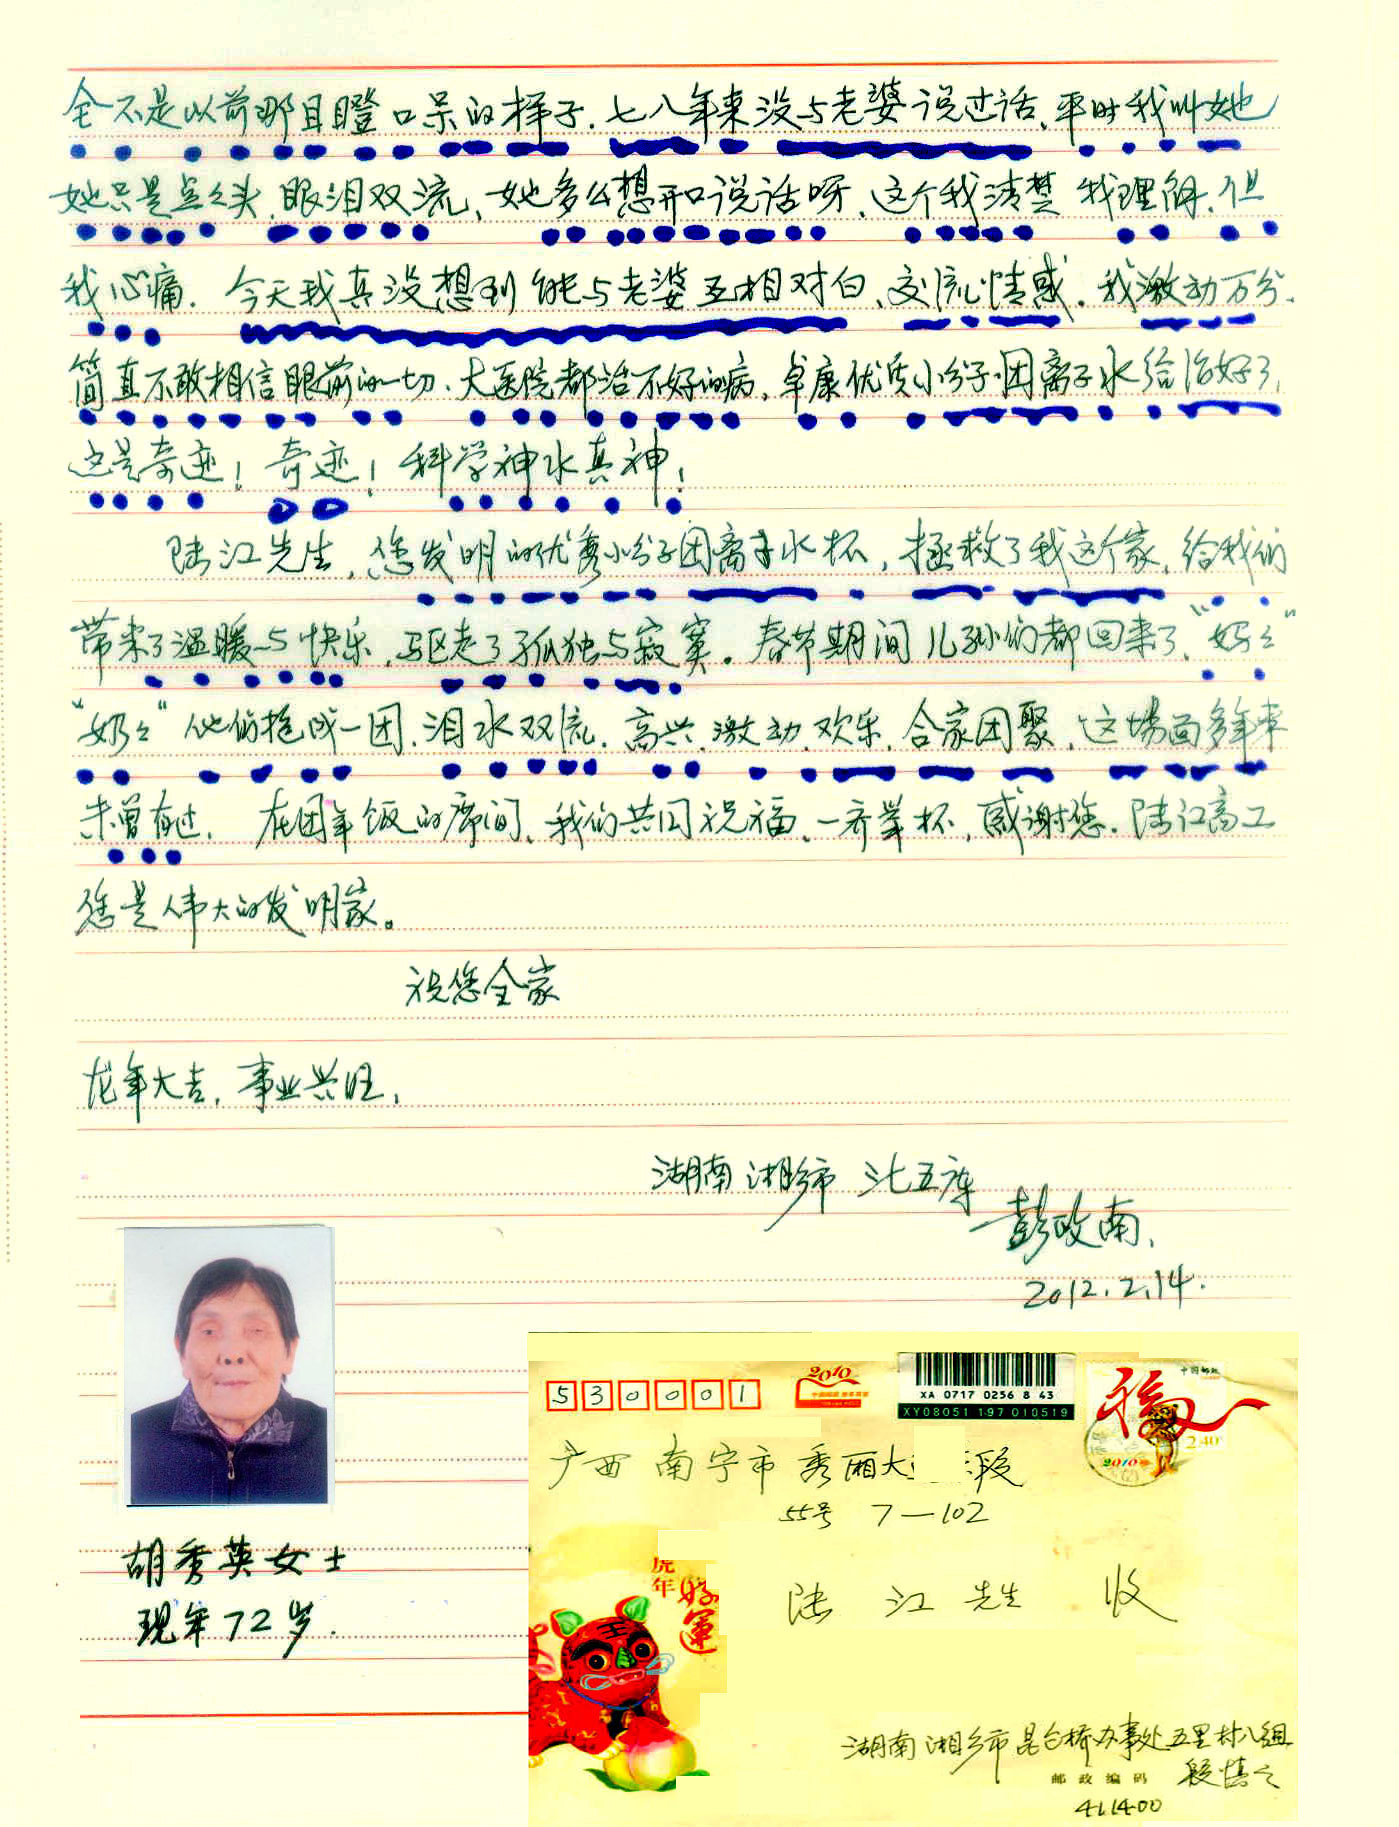 全不是以前那目瞪口呆的样子.七八年来没与老婆说过话、平时我叫她
她只是点々头.眼泪双流、她多么想开口说话呀、这个我清楚 我理解.但
我心痛. 今天我真没想到能与老婆互相对白、交流情感.我激动万分.
简直不敢相信眼前的一切.大医院都治不好的病,卓康优质小分子团离子水给治好了,
这是奇迹!奇迹!科学神水真神!
陆江先生,您发明的优秀小分子团离子水杯,拯救了我这个家,给我们
带来了温暖与快乐,驱走了孤独与寂寞.春节期间儿孙们都回来了、“妈々”
“奶々”他们抱成一团.泪水双流.高兴.激动.欢乐.合家团聚,这场面多年来
未曾有过. 在团年饭的席间、我们共同祝福、一齐举杯,感谢您.陆江高工
您是伟大的发明家。
祝您全家
龙年大吉.事业兴旺,
湖南湘乡市 五库
彭政南.
2012.2.14.
胡秀英女士
现年72岁.
530001
2010
XA 0717 0256 8 43
XY08051 197 010519
中国邮政
福
2.40
2010
广西 南宁市 秀厢大 段
55号 7—102
陆 江 先生 收
虎年
好運
王
湖南湘乡市昆仑桥办事处五里村八组
邮政编码 段
411400